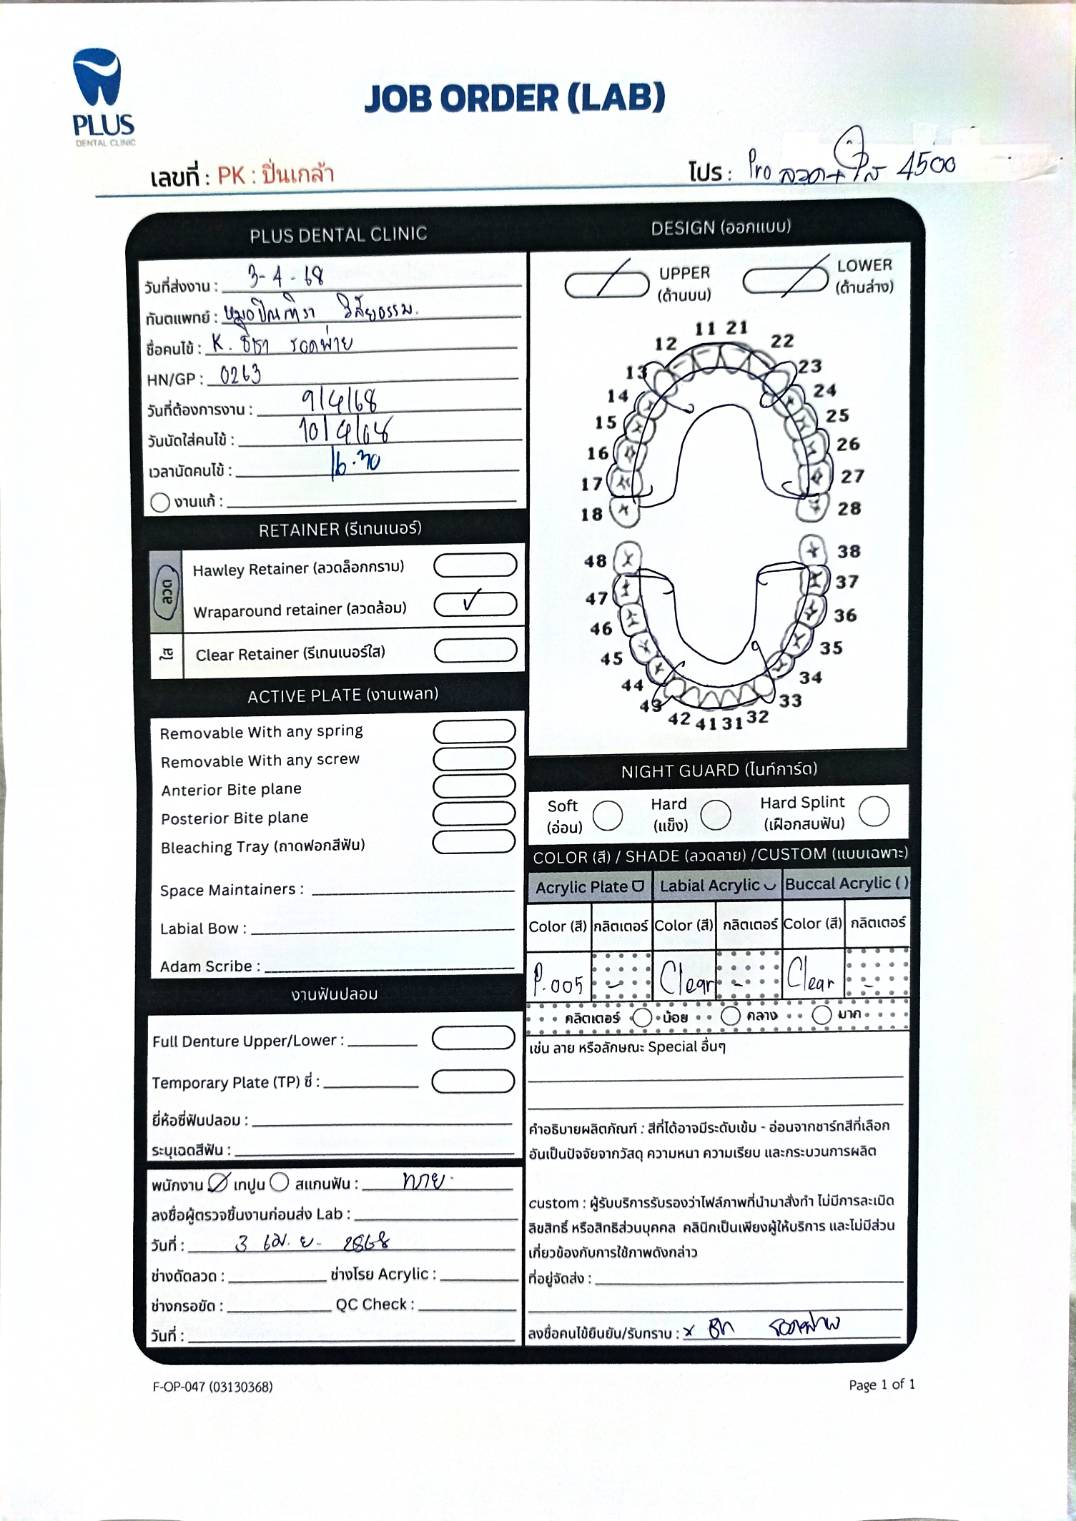 PLUS
DENTAL CLINIC
JOB ORDER (LAB)
เลขที่ : PK : ปิ่นเกล้า
โปร : Pro ลวด+ใส 4500
PLUS DENTAL CLINIC
วันที่ส่งงาน : 3-4-68
ทันตแพทย์ : หมอปัณฑิรา
ชื่อคนไข้ : K.
HN/GP : 0263
วันที่ต้องการงาน : 9/4/68
วันนัดใส่คนไข้ : 10/4/68
เวลานัดคนไข้ : 16.30
งานแก้ :
RETAINER (รีเทนเนอร์)
ลวด
Hawley Retainer (ลวดล็อกกราม)
Wraparound retainer (ลวดล้อม) ✓
ใส
Clear Retainer (รีเทนเนอร์ใส)
ACTIVE PLATE (งานเพลท)
Removable With any spring
Removable With any screw
Anterior Bite plane
Posterior Bite plane
Bleaching Tray (ถาดฟอกสีฟัน)
Space Maintainers :
Labial Bow :
Adam Scribe :
งานฟันปลอม
Full Denture Upper/Lower :
Temporary Plate (TP) ซี่ :
ยี่ห้อซี่ฟันปลอม :
ระบุเฉดสีฟัน :
พนักงาน เทปูน สแกนฟัน :
ลงชื่อผู้ตรวจชิ้นงานก่อนส่ง Lab :
วันที่ : 3 เม.ย. 2568
ช่างดัดลวด : ช่างโรย Acrylic :
ช่างกรอขัด : QC Check :
วันที่ :
DESIGN (ออกแบบ)
UPPER
(ด้านบน)
LOWER
(ด้านล่าง)
11 21
12 22
13 23
14 24
15 25
16 26
17 27
18 28
48 38
47 37
46 36
45 35
44 34
43 33
42 41 31 32
NIGHT GUARD (ไนท์การ์ด)
Soft
(อ่อน)
Hard
(แข็ง)
Hard Splint
(เฝือกสบฟัน)
COLOR (สี) / SHADE (ลวดลาย) /CUSTOM (แบบเฉพาะ)
Acrylic Plate Labial Acrylic Buccal Acrylic ( )
Color (สี) กลิตเตอร์ Color (สี) กลิตเตอร์ Color (สี) กลิตเตอร์
P.005 - Clear - Clear -
กลิตเตอร์ น้อย กลาง มาก
เช่น ลาย หรือลักษณะ Special อื่นๆ
คำอธิบายผลิตภัณฑ์ : สีที่ได้อาจมีระดับเข้ม - อ่อนจากชาร์ทสีที่เลือก
อันเป็นปัจจัยจากวัสดุ ความหนา ความเรียบ และกระบวนการผลิต
custom : ผู้รับบริการรับรองว่าไฟล์ภาพที่นำมาสั่งทำ ไม่มีการละเมิด
ลิขสิทธิ์ หรือสิทธิส่วนบุคคล คลินิกเป็นเพียงผู้ให้บริการ และไม่มีส่วน
เกี่ยวข้องกับการใช้ภาพดังกล่าว
ที่อยู่จัดส่ง :
ลงชื่อคนไข้ยืนยัน/รับทราบ : x
F-OP-047 (03130368)
Page 1 of 1